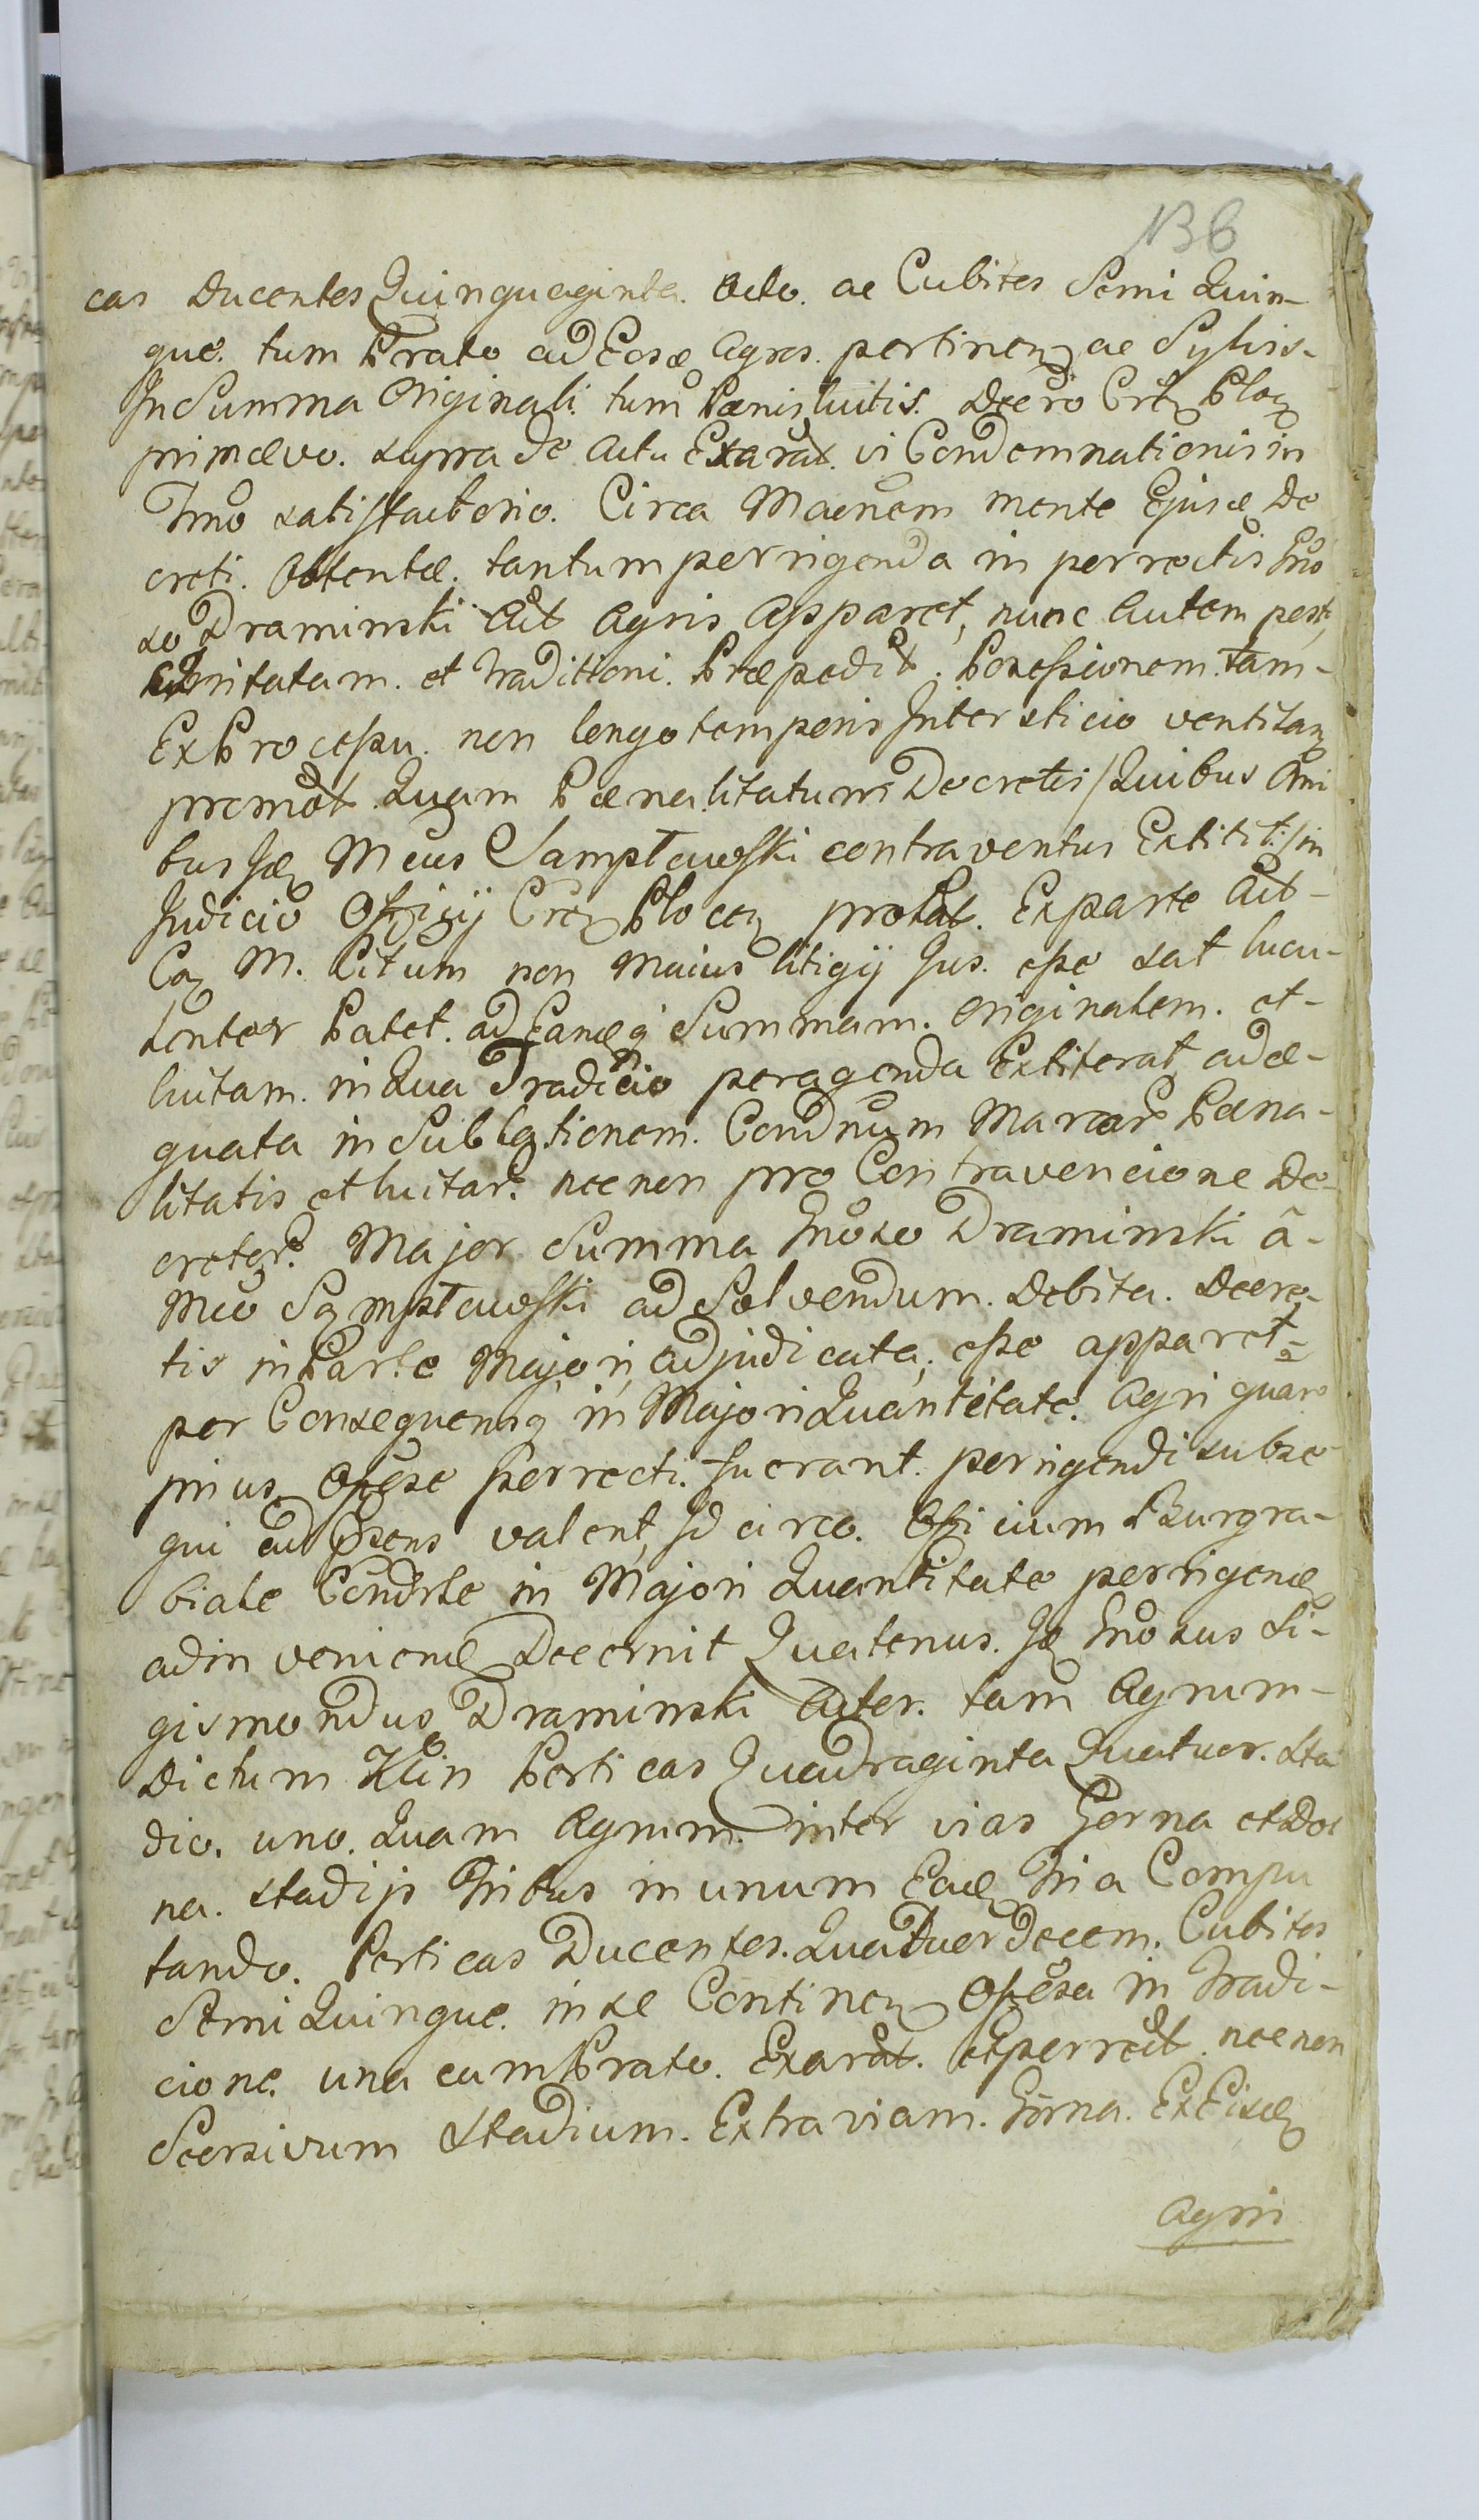 136
cas Ducentas Quinquaginta. Octo. ac Cubitos Semi Quin-
que. tum Prato ad Eosd Agros. pertinen ac Sylvis.
In Summa Originali. tum Pænis luitis. Decro Crti Ploc
primævo. supra de actu Exarat. vi Condemnationis in
Tmo satisfactorio. Circa Maenem mente Ejusd De
creti. Obtentæ. tantum perrigenda in perrectis Gno
so Draminski Act Agris Apparet, nunc Autem post
intatam. et Traditioni. Præpedit. Possessionem. tam-
Ex Processu. non longo temporis Intersticio ventilan
promot. Quam Pænalitatum Decretis /Quibus Omi
bus Id Mcus Sampławski contraventus Extitit:/ in
Judicio Officij Cren Plocen prolat. Ex parte Act-
Ca M. Citum non Maius litigij Jus. esse sat lucu-
lenter Patet. ad Eand q Summam. Originalem. et-
luitam. in Qua Tradicio peragenda Extiterat adæ-
quata in Sublationem. Condnum Marcar Pæna-
litatis et luitar. necnon pro Contravencione De-
cretor. Major Summa Gnoso Draminski â-
Mco Sampławski ad Solvendum. Debita. Decre-
tis in Parte Majori, adjudicata, esse apparet-
per Consequens in Majori Quantitate. Agri quam
prius Offose perrecti. fuerant. perrigendi subse
qui ad Præsens valent, Id circo. Officium Burgra-
biale Condrle in Majori Quantitate perrigend
adinveniend Decernit Quatenus. Id Gnosus Si-
gismondus Draminski Actor. tam Agrum-
Dictum Klin Perticas Quadraginta Quatuor. Sta
dio. uno. Quam Agrum. inter vias Gorna et Dol
na. Stadijs Tribus in unum Ead Tria Compu
tando. Perticas Ducentas. Quatuordecem. Cubitos
Semi Quinque. in se Continen Offosa in Tradi-
cione. una cum Prato. Exarat. et perrect. necnon
Seorsivum Stadium. Extra viam. Gorna. Ex Eisd
Agris